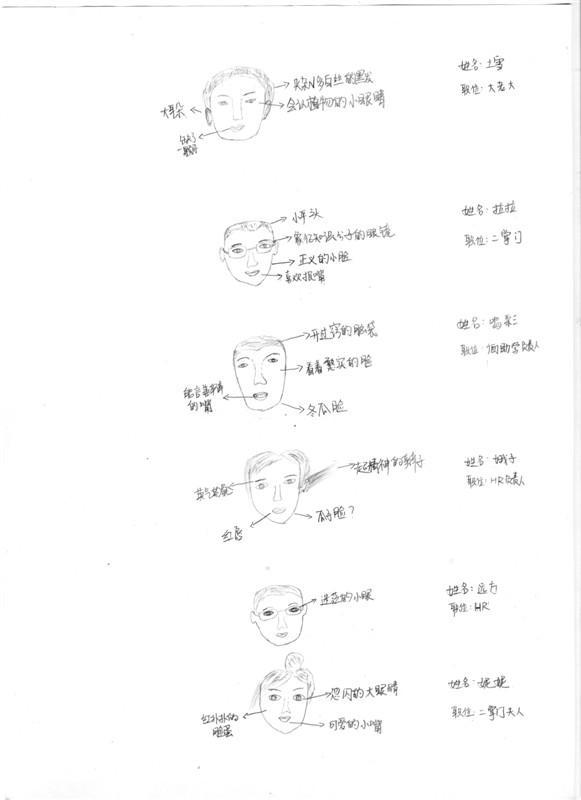 夹杂N多白丝的黑发
会认植物的小眼睛
大耳朵
姓名: 土雪
职位: 大老大
小平头
象征知识分子的眼镜
正义的小脸
喜欢抿嘴
姓名: 拉拉
职位: 二掌门
开过窍的脑袋
看着憨实的脸
的嘴
冬瓜脸
姓名:
职位: 负责人
超精神的
英气
红唇
瓜子脸?
姓名: 娥子
职位: HR负责人
迷茫的小眼
姓名: 远方
职位: HR
忽闪的大眼睛
红扑扑的
脸蛋
可爱的小嘴
姓名: 妮妮
职位: 二掌门夫人